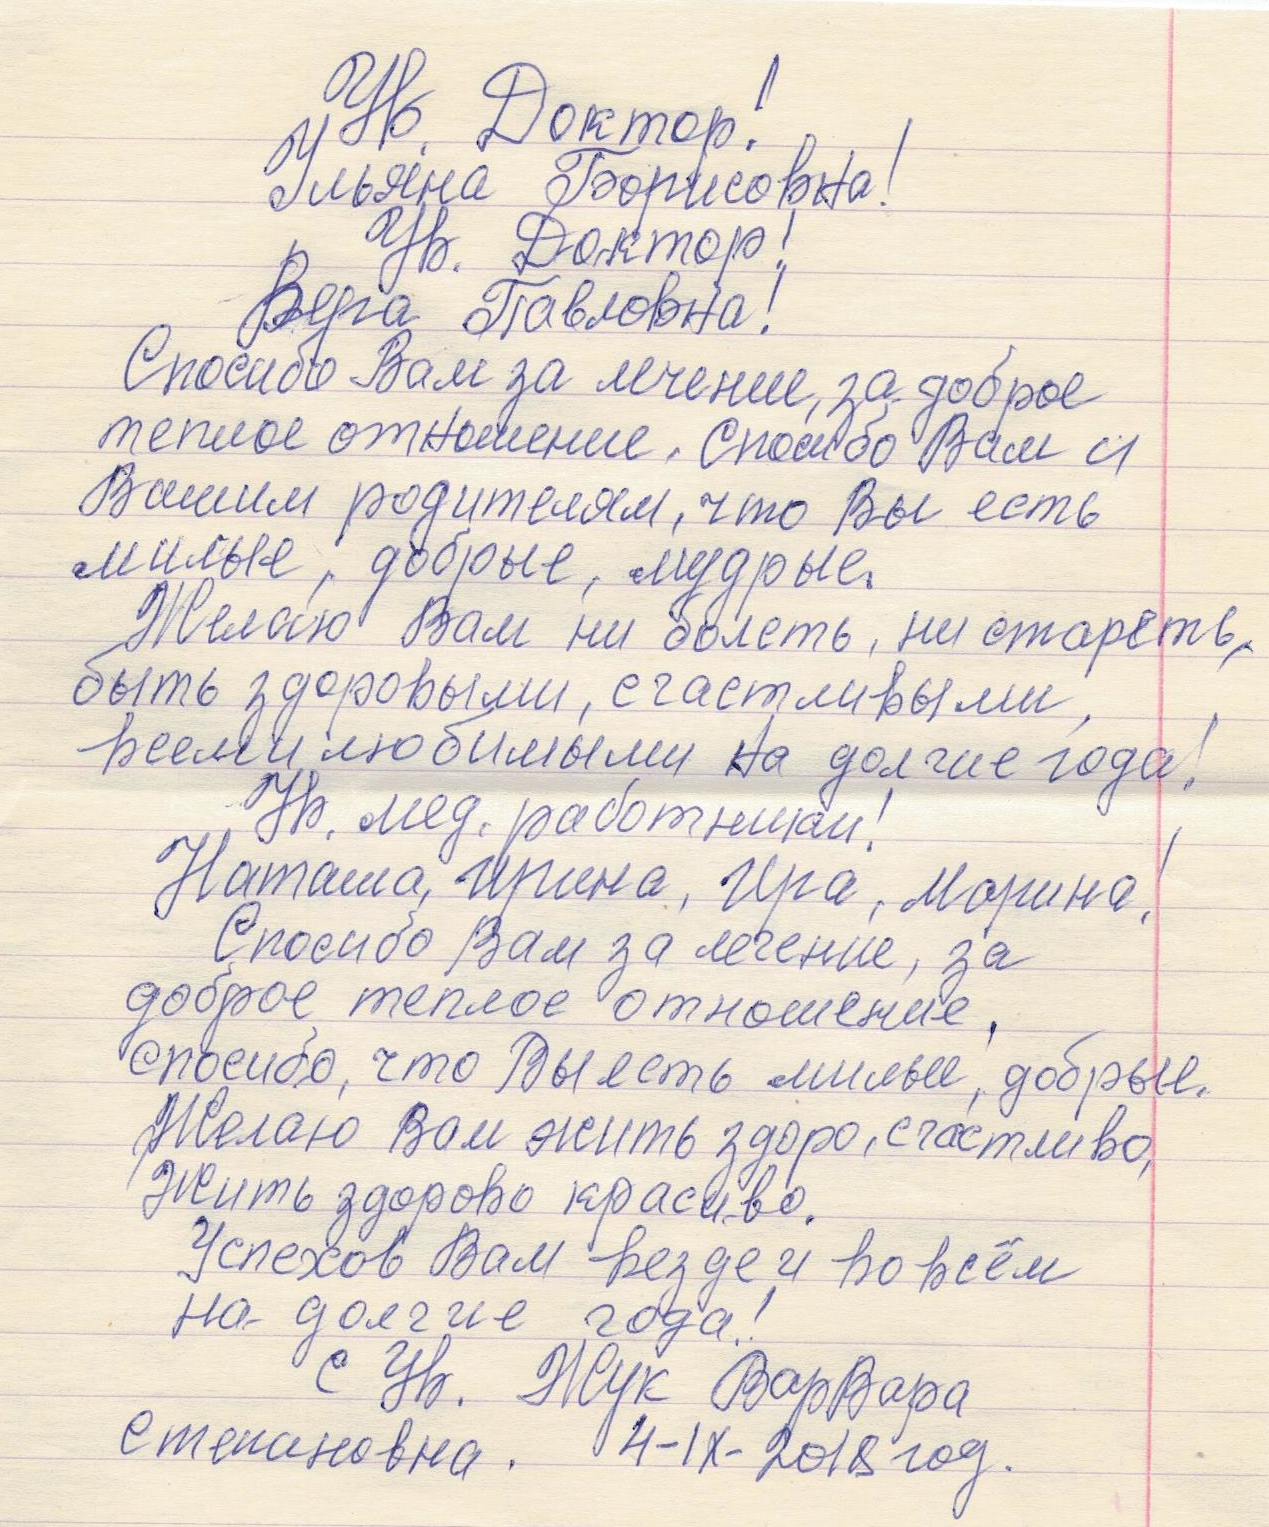 Ув. Доктор!
Ульяна Борисовна!
Ув. Доктор!
Вера Павловна!
Спосибо Вам за лечение, за доброе
теплое отношение. Спосибо Вам и
Вашим родителям, что Вы есть
милые, добрые, мудрые.
Желаю Вам ни болеть, ни стареть,
быть здоровыми, счастливыми,
всеми любимыми на долгие года!
Ув. мед. работники!
Наташа, Ирина, Ира, Марина!
Спосибо Вам за лечение, за
доброе теплое отношение,
спосибо, что Вы есть милые, добрые.
Желаю Вам жить здоро, счастливо,
Жить здорово красиво.
Успехов Вам везде и во всём
на долгие года!
с Ув. Жук ВарВара
Степановна. 4-IX-2018 год.